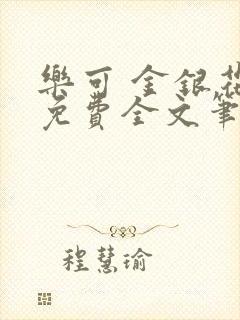 樂可 金銀花
免費全文筆
程慧瑜